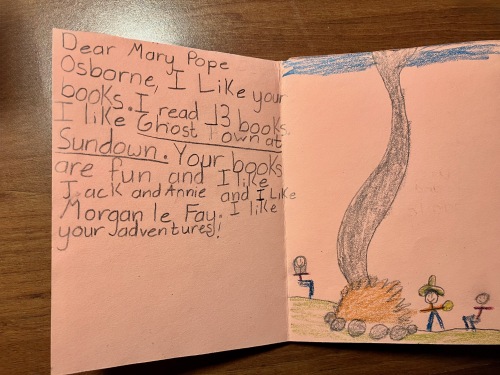 Dear Mary Pope
Osborne, I Like your
books. I read 13 books.
I like Ghost Town at
Sundown. Your books
are fun and I like
Jack and Annie and I Like
Morgan le Fay. I like
your adventures!